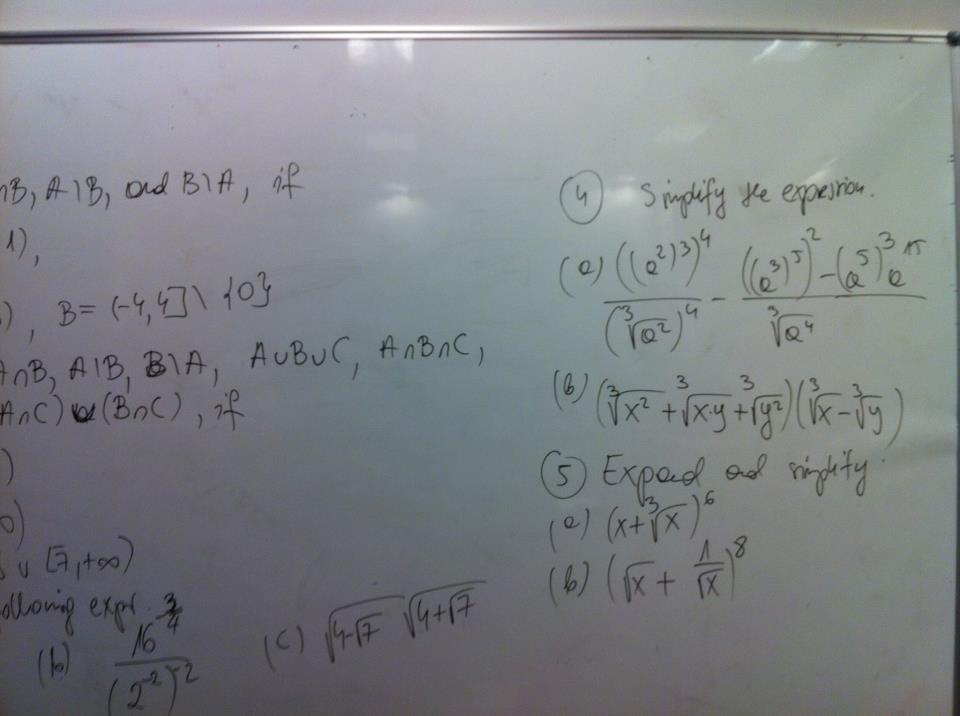 ∩B, A\B, and B\A, if
1),
), B = (-4,4] \ {0}
A∩B, A\B, B\A, A∪B∪C, A∩B∩C,
A∩C) (B∩C), if
)
0)
∪ [7,+∞)
ollowing expr.
(b) 16^(-3/4) / (2^(-2))^(-2)
(c) √(4-√7) √(4+√7)
④ Simplify the expression.
(a) ((a²)³)⁴ / (∛(a²))⁴ - (((a³)⁵)² - (a⁵)³a¹⁵) / ∛(a⁴)
(b) (∛(x²) + ∛(x·y) + ∛(y²))(∛x - ∛y)
⑤ Expand and simplify.
(a) (x+∛x)⁶
(b) (√x + 1/√x)⁸